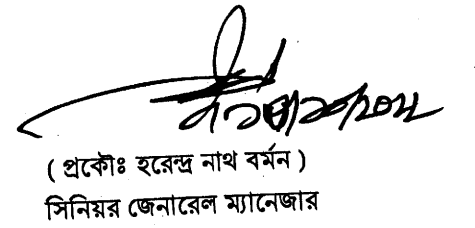 ( প্রকৌঃ হরেন্দ্র নাথ বর্মন )
সিনিয়র জেনারেল ম্যানেজার